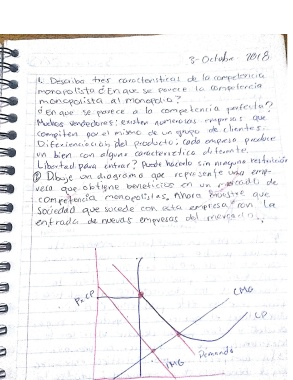 3-Octubre-2018
1. Describa tres características de la competencia
monopolista ¿En que se parece la competencia
monopolista al monopolio?
¿en que se parece a la competencia perfecta?
Muchos vendedores: existen numerosas empresas que
compiten por el mismo de un grupo de clientes.
Diferenciación del producto: cada empresa produce
un bien con alguna característica diferente.
Libertad para entrar? Puede hacerlo sin ninguna restricción
Dibuje un diagrama que represente una emp-
resa que obtiene beneficios en un mercado de
competencia monopolistas. Ahora muestre que
sucede con esta empresa con la
entrada de nuevas empresas del mercado.
P=CP
CMG
CP
Demanda
IMG